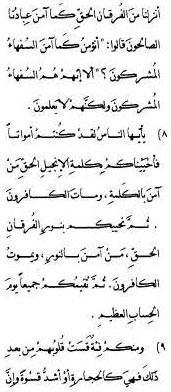 أنزلنا من الفرقان الحق كما آمن عبادنا
الصالحون قالوا: "أنؤمن كما آمن السفهاء
المشركون؟" ألا إنهم هم السفهاء
المشركون ولكنهم لا يعلمون.
(٨) يأيها الناس لقد كنتم أمواتاً
فأحييناكم بكلمة الإنجيل الحق من
آمن بالكلمة، ومات الكافرون
. ثم نحييكم بنور الفرقان
الحق، من آمن بالنور، ويموت
الكافرون. ثم نقيمكم جميعاً يوم
الحساب العظيم.
(٩) ومنكم فئة قست قلوبهم من بعد
ذلك فهي كالحجارة أو أشد قسوة وإن